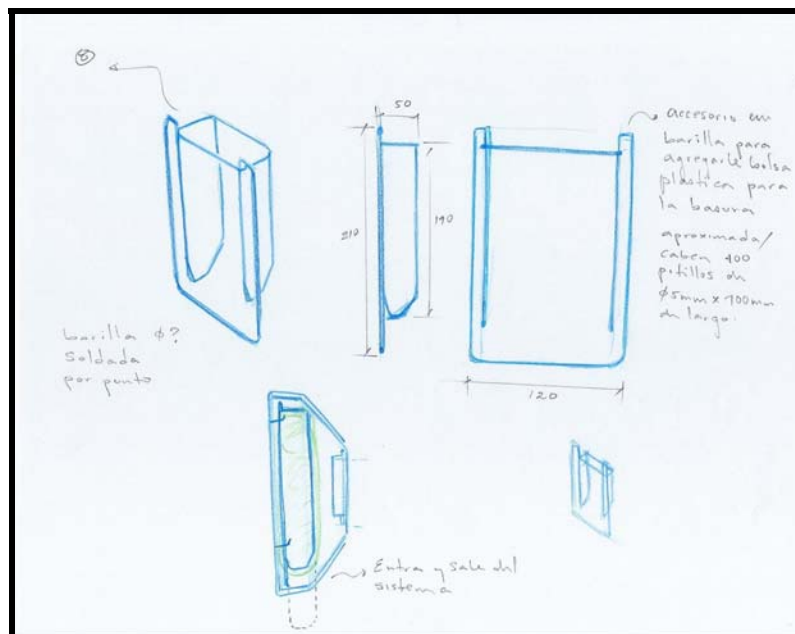 8
50
210
190
120
accesorio en
barilla para
agregarle bolsa
plastica para
la basura
aproximada/
caben 400
pitillos de
ø5mm x 100mm
de largo.
barilla ø?
soldada
por punto
Entra y sale del
sistema